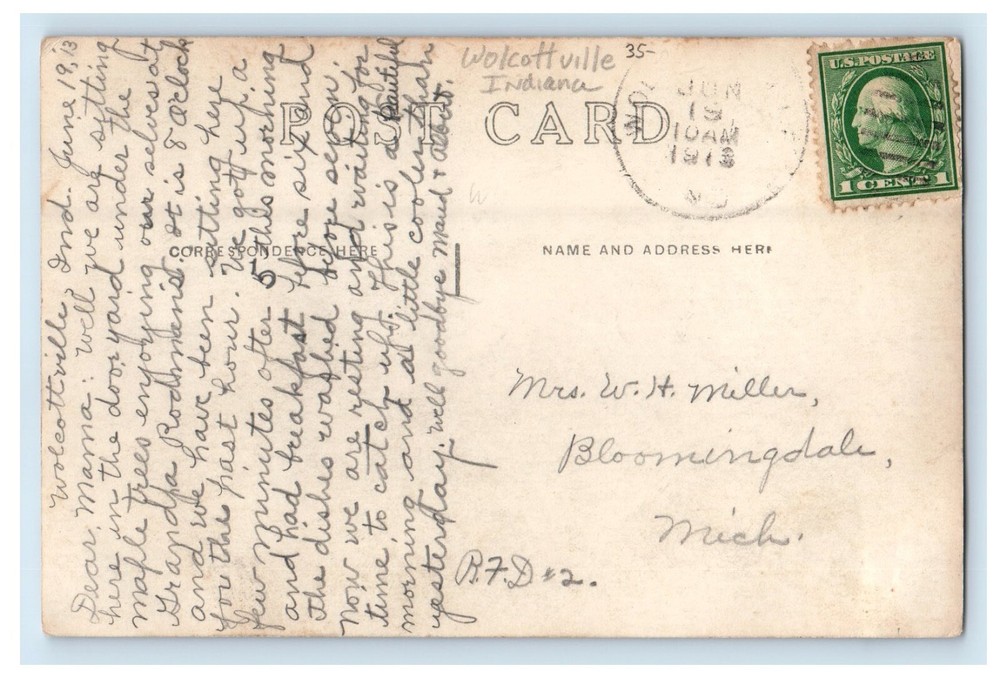 Wolcottville, Ind. June 19, 13
Dear Mama: Well we are sitting
here in the dooryard under the
maple trees enjoying our selves at
Grandpa It is 8 o'clock
and we have been setting here
for the past hour. We got up a
few minutes after 5 this morning
and had breakfast before six and
the dishes washed before seven.
Now we are resting and waiting for
time to catch up. This is a beautiful
morning and a little cooler than
yesterday. Well goodbye Maud + Albert.
Wolcottville
Indiana
35-
POST CARD
JUN
19
10AM
1913
U.S. POSTAGE
1 CENT 1
CORRESPONDENCE HERE
NAME AND ADDRESS HERE
Mrs. W. H. Miller,
Bloomingdale,
Mich.
R.F.D #2.